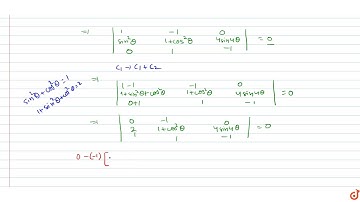 ⇒ | 1 -1 0 |
| sin²θ 1+cos²θ 4sin4θ | = 0
| 0 1 -1 |
C₁ → C₁ + C₂
sin²θ + cos²θ = 1
1 + sin²θ + cos²θ = 2
⇒ | 1-1 -1 0 |
| 1+sin²θ+cos²θ 1+cos²θ 4sin4θ | = 0
| 0+1 1 -1 |
⇒ | 0 -1 0 |
| 2 1+cos²θ 4sin4θ | = 0
| 1 1 -1 |
0 - (-1) [